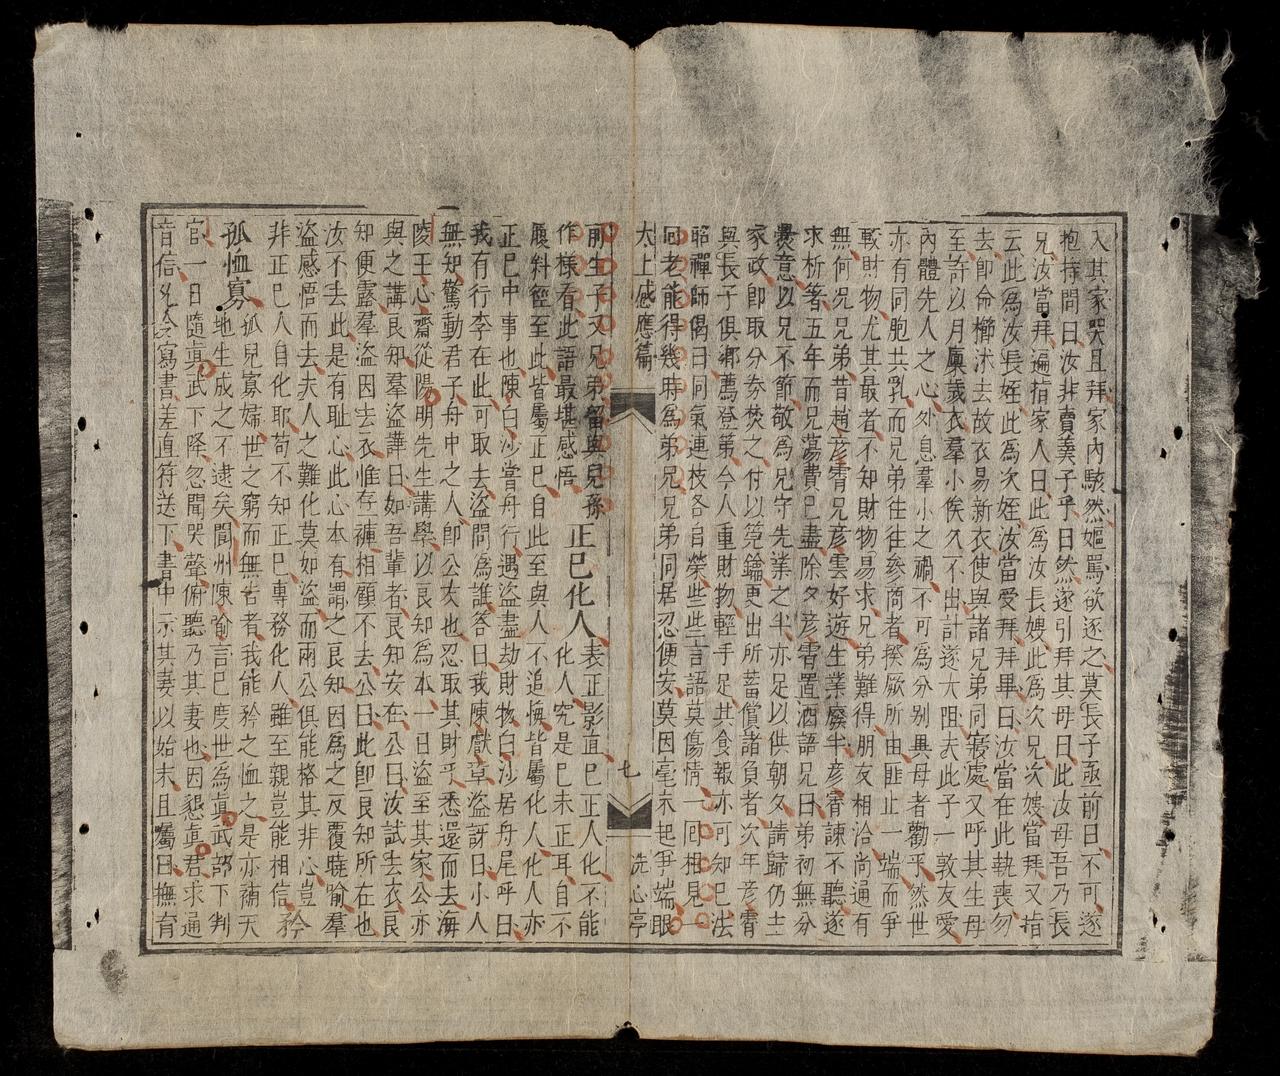 入其家哭且拜家內駭然嫗罵欲逐之莫長子亟前曰不可遂
抱持問曰汝非賣羹子乎曰然遂引拜其母曰此汝母吾乃長
兄汝當拜遍指家人曰此為汝長嫂此為次兄次嫂當拜又指
云此為汝長姪此為次姪汝當受拜拜畢曰汝當在此執喪勿
去即命櫛沐去故衣易新衣使與諸兄弟同寢處又呼其生母
至許以月廩歲衣羣小俟久不出計遂大阻夫此子一敦友愛
內體先人之心外息羣小之禍不可為分別異母者勸乎然世
亦有同胞共乳而兄弟往往參商者揆厥所由匪止一端而爭
較財物尤其最者不知財物易求兄弟難得朋友相洽尚通有
無何況兄弟昔趙彥霄兄彥雲好遊生業廢半彥霄諫不聽遂
求析箸五年而兄蕩費已盡除夕彥霄置酒語兄曰弟初無分
爨意以兄不節敬為兄守先業之半亦足以供朝夕請歸仍主
家政即取分劵焚之付以筦鑰更出所蓄償諸負者次年彥霄
與長子俱鄉薦登第今人重財物輕手足其食報亦可知已法
昭禪師偈曰同氣連枝各自榮些些言語莫傷情一囘相見一
囘老能得幾時為弟兄兄弟同居忍便安莫因毫末起爭端眼
太上感應篇 七 洗心亭
前生子又兄弟留與兒孫 正己化人 表正影直己正人化不能
作樣看此語最堪感悟 化人究是己未正耳自不
履斜徑至此皆屬正己自此至與人不追悔皆屬化人化人亦
正己中事也陳白沙嘗舟行遇盜盡劫財物白沙居舟尾呼曰
我有行李在此可取去盜問為誰答曰我陳獻章盜訝曰小人
無知驚動君子舟中之人即公友也忍取其財乎悉還而去海
陵王心齋從陽明先生講學以良知為本一日盜至其家公亦
與之講良知羣盜譁曰如吾輩者良知安在公曰汝試去衣良
知便露羣盜因去衣惟存褲相顧不去公曰此即良知所在也
汝不去此是有耻心此心本有謂之良知因為之反覆曉喻羣
盜感悟而去夫人之難化莫如盜而兩公俱能格其非心豈
非正己人自化耶苟不知正己專務化人雖至親豈能相信 矜
孤恤寡 孤兒寡婦世之窮而無告者我能矜之恤之是亦補天
地生成之不逮矣閬州陳喻言已度世為眞武部下判
官一日隨眞武下降忽聞哭聲俯聽乃其妻也因懇眞君求通
音信允令寫書差直符送下書中示其妻以始末且屬曰撫育